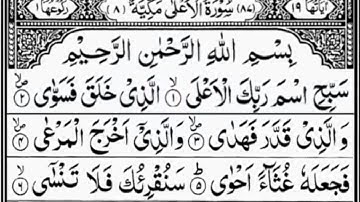 اٰيَاتُهَا ١٩ (٨٧) سُوْرَةُ الْاَعْلٰى مَكِّيَّةٌ (٨) رُكُوْعُهَا ١
بِسْمِ اللّٰهِ الرَّحْمٰنِ الرَّحِيْمِ
سَبِّحِ اسْمَ رَبِّكَ الْاَعْلَى ۙ﴿١﴾ الَّذِىْ خَلَقَ فَسَوّٰى ۙ﴿٢﴾
وَالَّذِىْ قَدَّرَ فَهَدٰى ۙ﴿٣﴾ وَالَّذِىْۤ اَخْرَجَ الْمَرْعٰى ۙ﴿٤﴾
فَجَعَلَهٗ غُثَآءً اَحْوٰى ؕ﴿٥﴾ سَنُقْرِئُكَ فَلَا تَنْسٰٓى ۙ﴿٦﴾